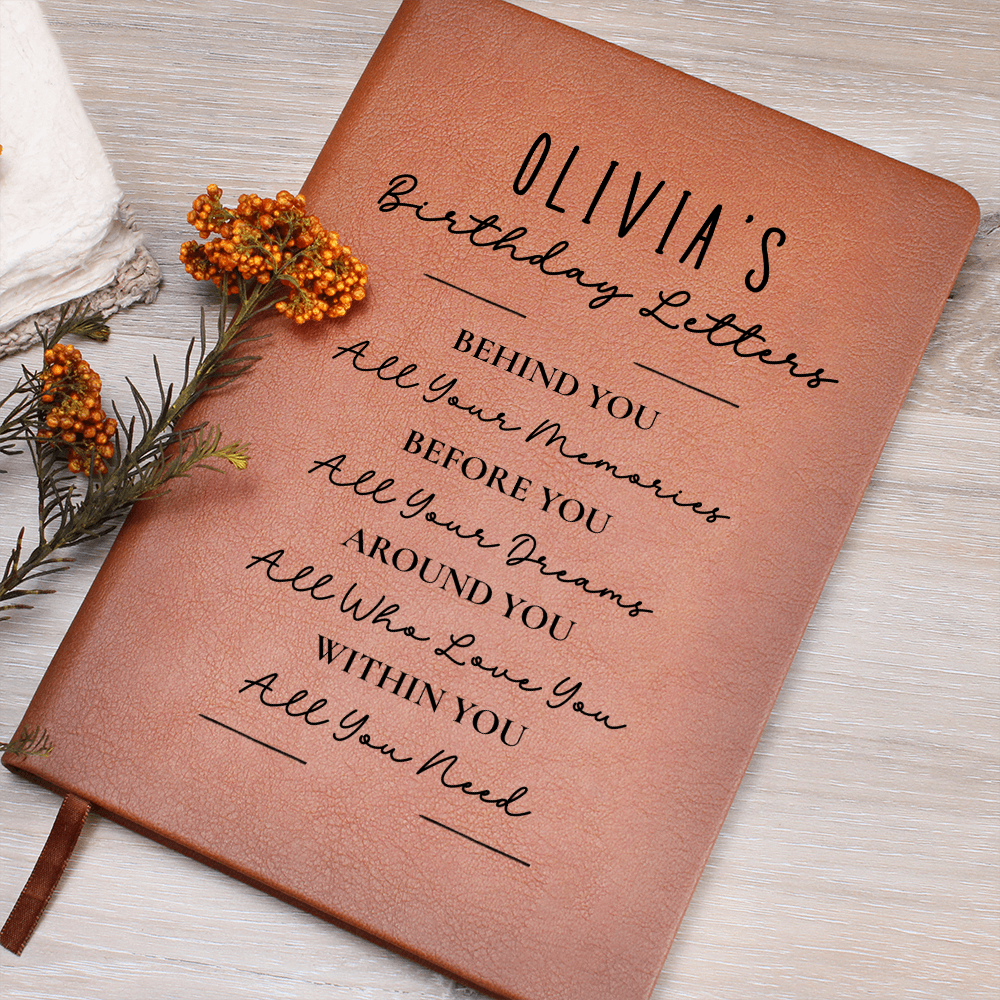 OLIVIA'S
Birthday Letters
BEHIND YOU
All Your Memories
BEFORE YOU
All Your Dreams
AROUND YOU
All Who Love You
WITHIN YOU
All You Need